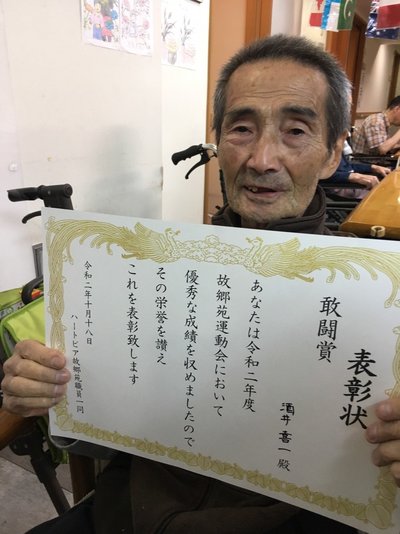 表彰状
敢闘賞
酒井喜一殿
あなたは令和二年度
故郷苑運動会において
優秀な成績を収めましたので
その栄誉を讃え
これを表彰致します
令和二年十月十八日
ハートピア故郷苑職員一同